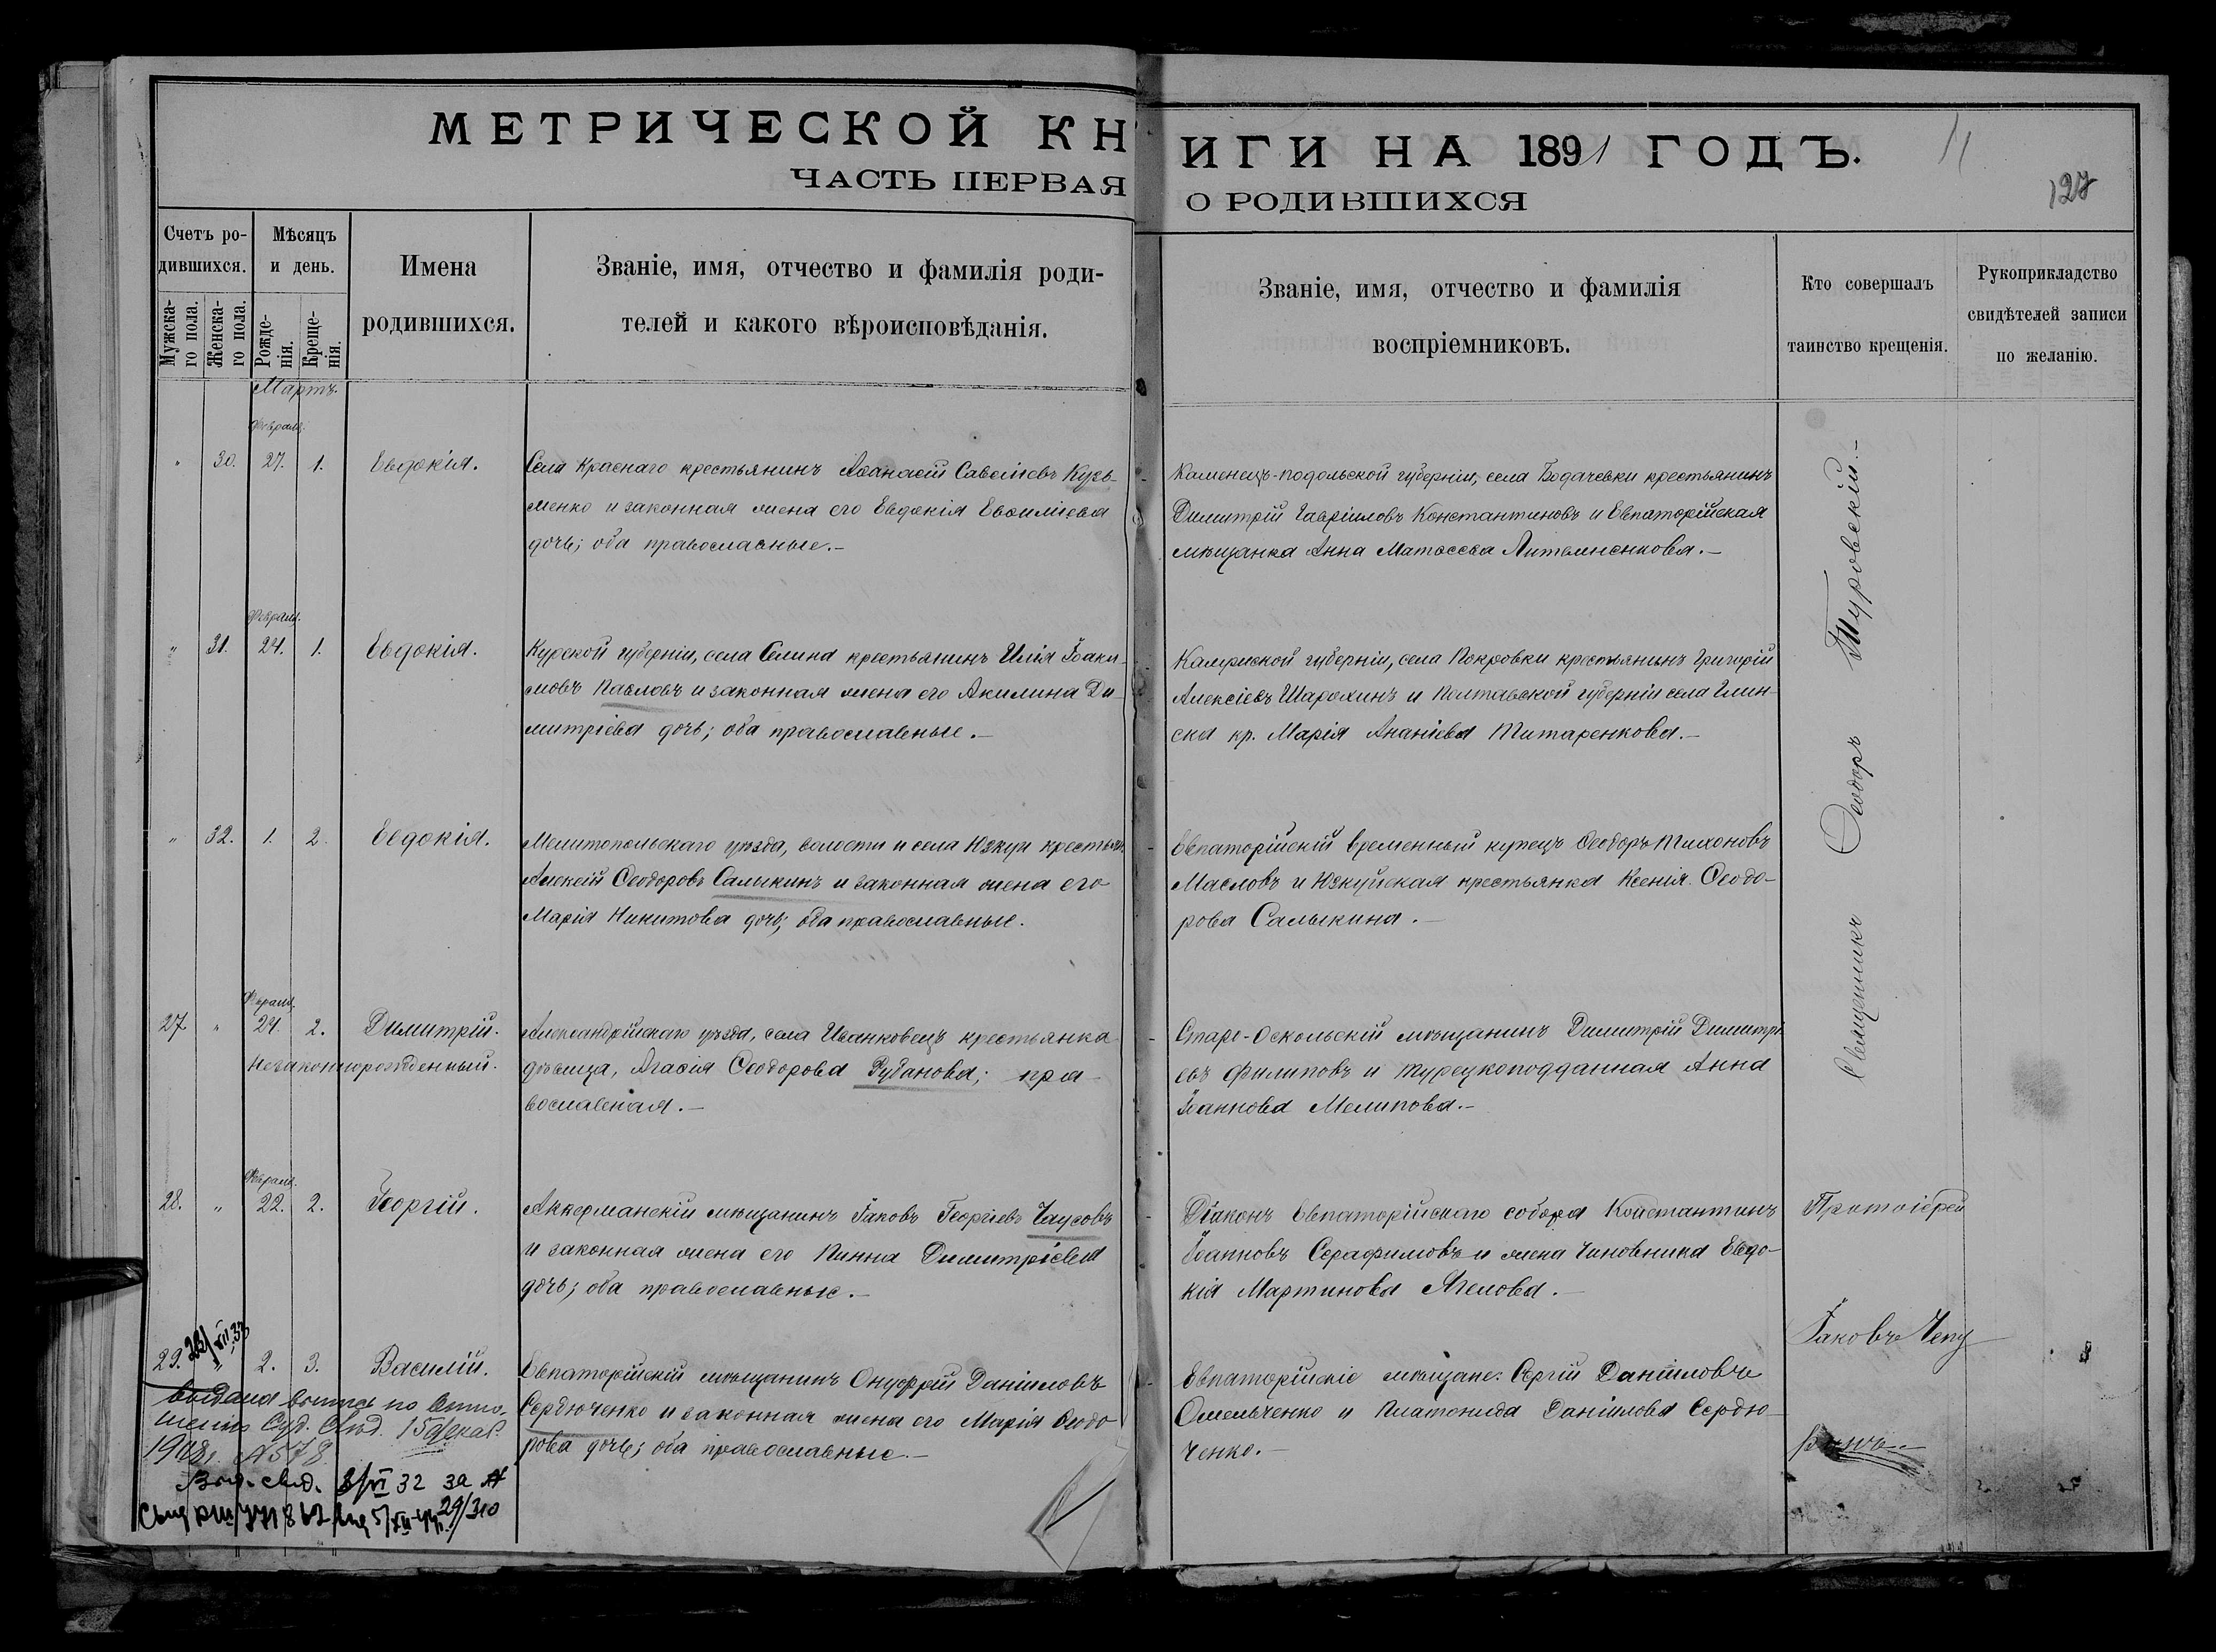 МЕТРИЧЕСКОЙ КНИГИ НА 1891 ГОДЪ.
ЧАСТЬ ПЕРВАЯ О РОДИВШИХСЯ
11
127
Счетъ ро-
дившихся.
Мужска-
го пола.
Женска-
го пола.
Мѣсяцъ
и день.
Рожде-
нія.
Креще-
нія.
Имена
родившихся.
Званіе, имя, отчество и фамилія роди-
телей и какого вѣроисповѣданія.
Званіе, имя, отчество и фамилія
воспріемниковъ.
Кто совершалъ
таинство крещенія.
Рукоприкладство
свидѣтелей записи
по желанію.
Мартъ.
Февраля.
" 30. 27. 1. Евдокія.
Села Краснаго крестьянинъ Аѳанасій Савеліевъ Кузь-
менко и законная жена его Евдокія
дочь; оба православные.-
Каменецъ-подольской губерніи, села Бодачевки крестьянинъ
Димитрій Гавріиловъ Константиновъ и Евпаторійская
мѣщанка Анна Матѳеева Литвиненкова.-
Февраля.
" 31. 24. 1. Евдокія.
Курской губерніи, села Селина крестьянинъ Илія Іоаки-
мовъ Павловъ и законная жена его Акилина Ди-
митріева дочь; оба православные.-
губерніи, села Покровки крестьянинъ Григорій
Алексіевъ Шарохинъ и Полтавской губерніи села Глин-
ска кр. Марія Ананіева Титаренкова.-
" 32. 1. 2. Евдокія.
Мелитопольскаго уѣзда, волости и села Юзкуи крестьян.
Алексій Ѳеодоровъ Салыкинъ и законная жена его
Марія Никитова дочь; оба православные.
Евпаторійскій временный купецъ Ѳеодоръ Тихоновъ
Масловъ и Юзкуйская крестьянка Ксенія Ѳеодо-
рова Салыкина.-
Священникъ Ѳеодоръ Туровскій.-
Февраля.
27. " 24. 2. Димитрій.
Незаконнорожденный.
Александрійскаго уѣзда, села Иванковецъ крестьянка
дѣвица, Агаѳія Ѳеодорова Рубанова; пра-
вославная.-
Старо-Оскольскій мѣщанинъ Димитрій Димитрі-
евъ Филиповъ и турецкоподданная Анна
Іоаннова Мелипова.-
Февраля.
28. " 22. 2. Георгій.
Аккерманскій мѣщанинъ Іаковъ Георгіевъ Чаусовъ
и законная жена его Пинна Димитріева
дочь; оба православные.-
Діаконъ Евпаторійскаго собора Константинъ
Іоанновъ Серафимовъ и жена чиновника Евдо-
кія Мартинова
Протоіерей
29. " 2. 3. Василій.
Евпаторійскій мѣщанинъ Онуфрій Даніиловъ
Сердюченко и законная жена его Марія Ѳеодо-
рова дочь; оба православные.-
Евпаторійскіе мѣщане: Сергій Даніиловъ
Омельченко и Платонида Даніилова Сердю-
ченко.-
Іаковъ Чепу
ринъ
выдана выпись по отно-
шенію Суд. Слѣд. 15 декаб.
1908, №578.
Выд. свид. 3/VI 32 за №
29/310